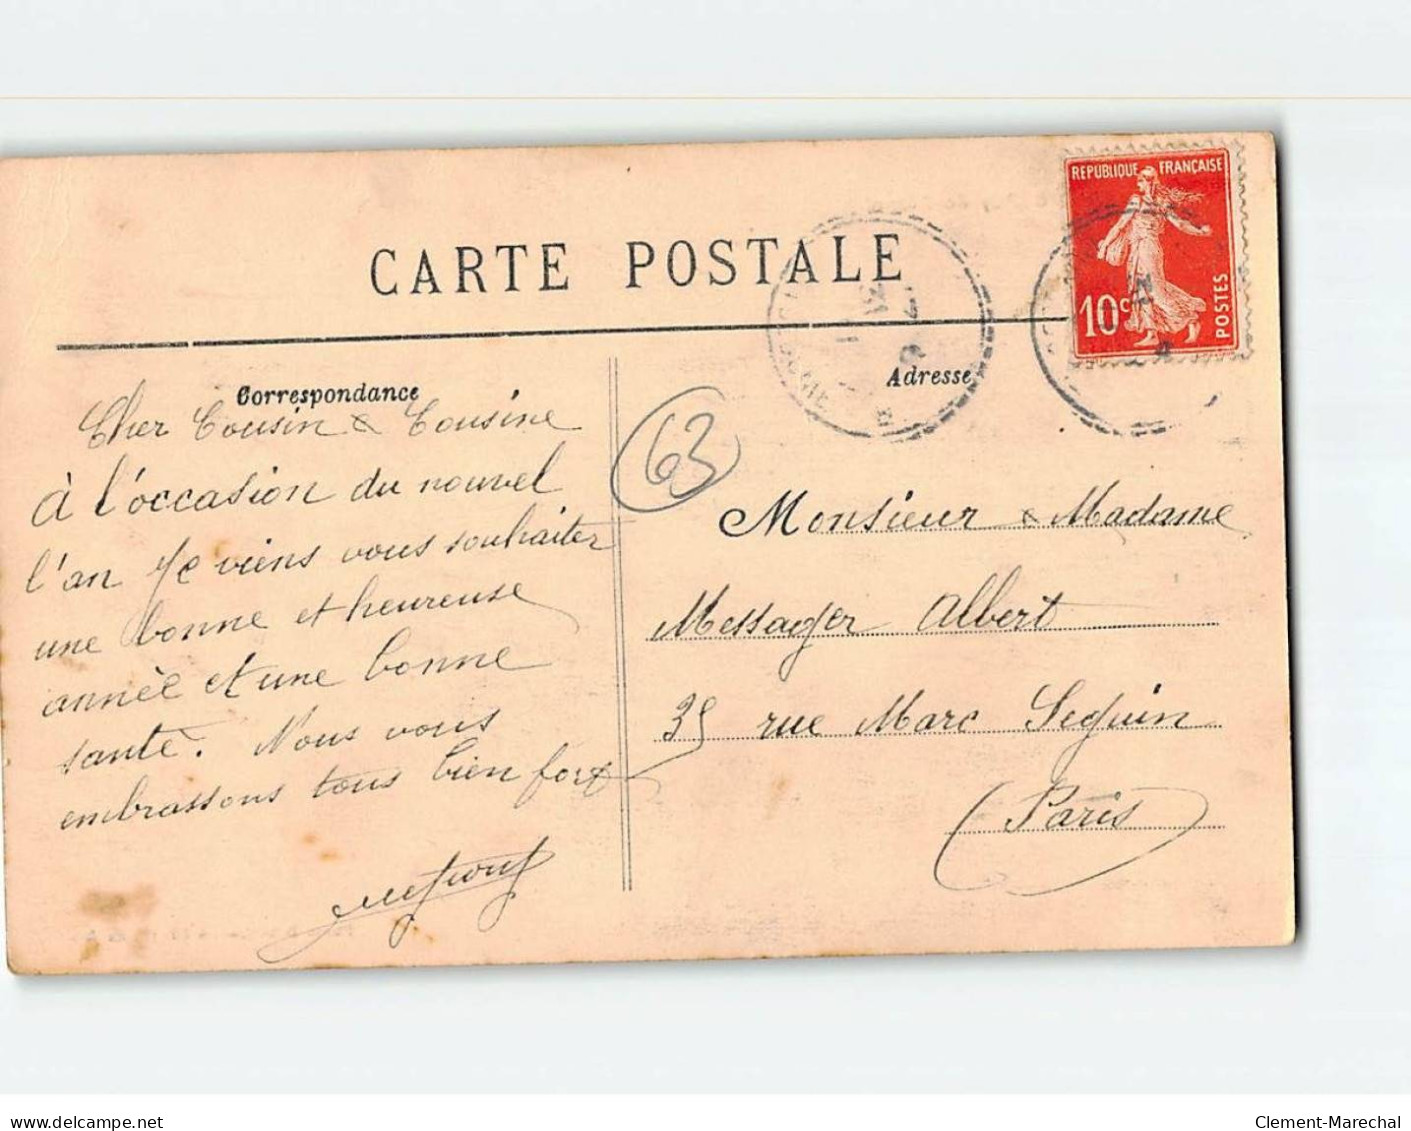 REPUBLIQUE FRANÇAISE
10c
POSTES
CARTE POSTALE
Correspondance
Adresse
63
Cher Cousin & Cousine
à l'occasion du nouvel
l'an Je viens vous souhaiter
une bonne et heureuse
année et une bonne
santé. Nous vous
embrassons tous bien fort
Monsieur & Madame
Messager Albert
35 rue Marc Seguin
Paris
www.delcampe.net
Clement-Marechal